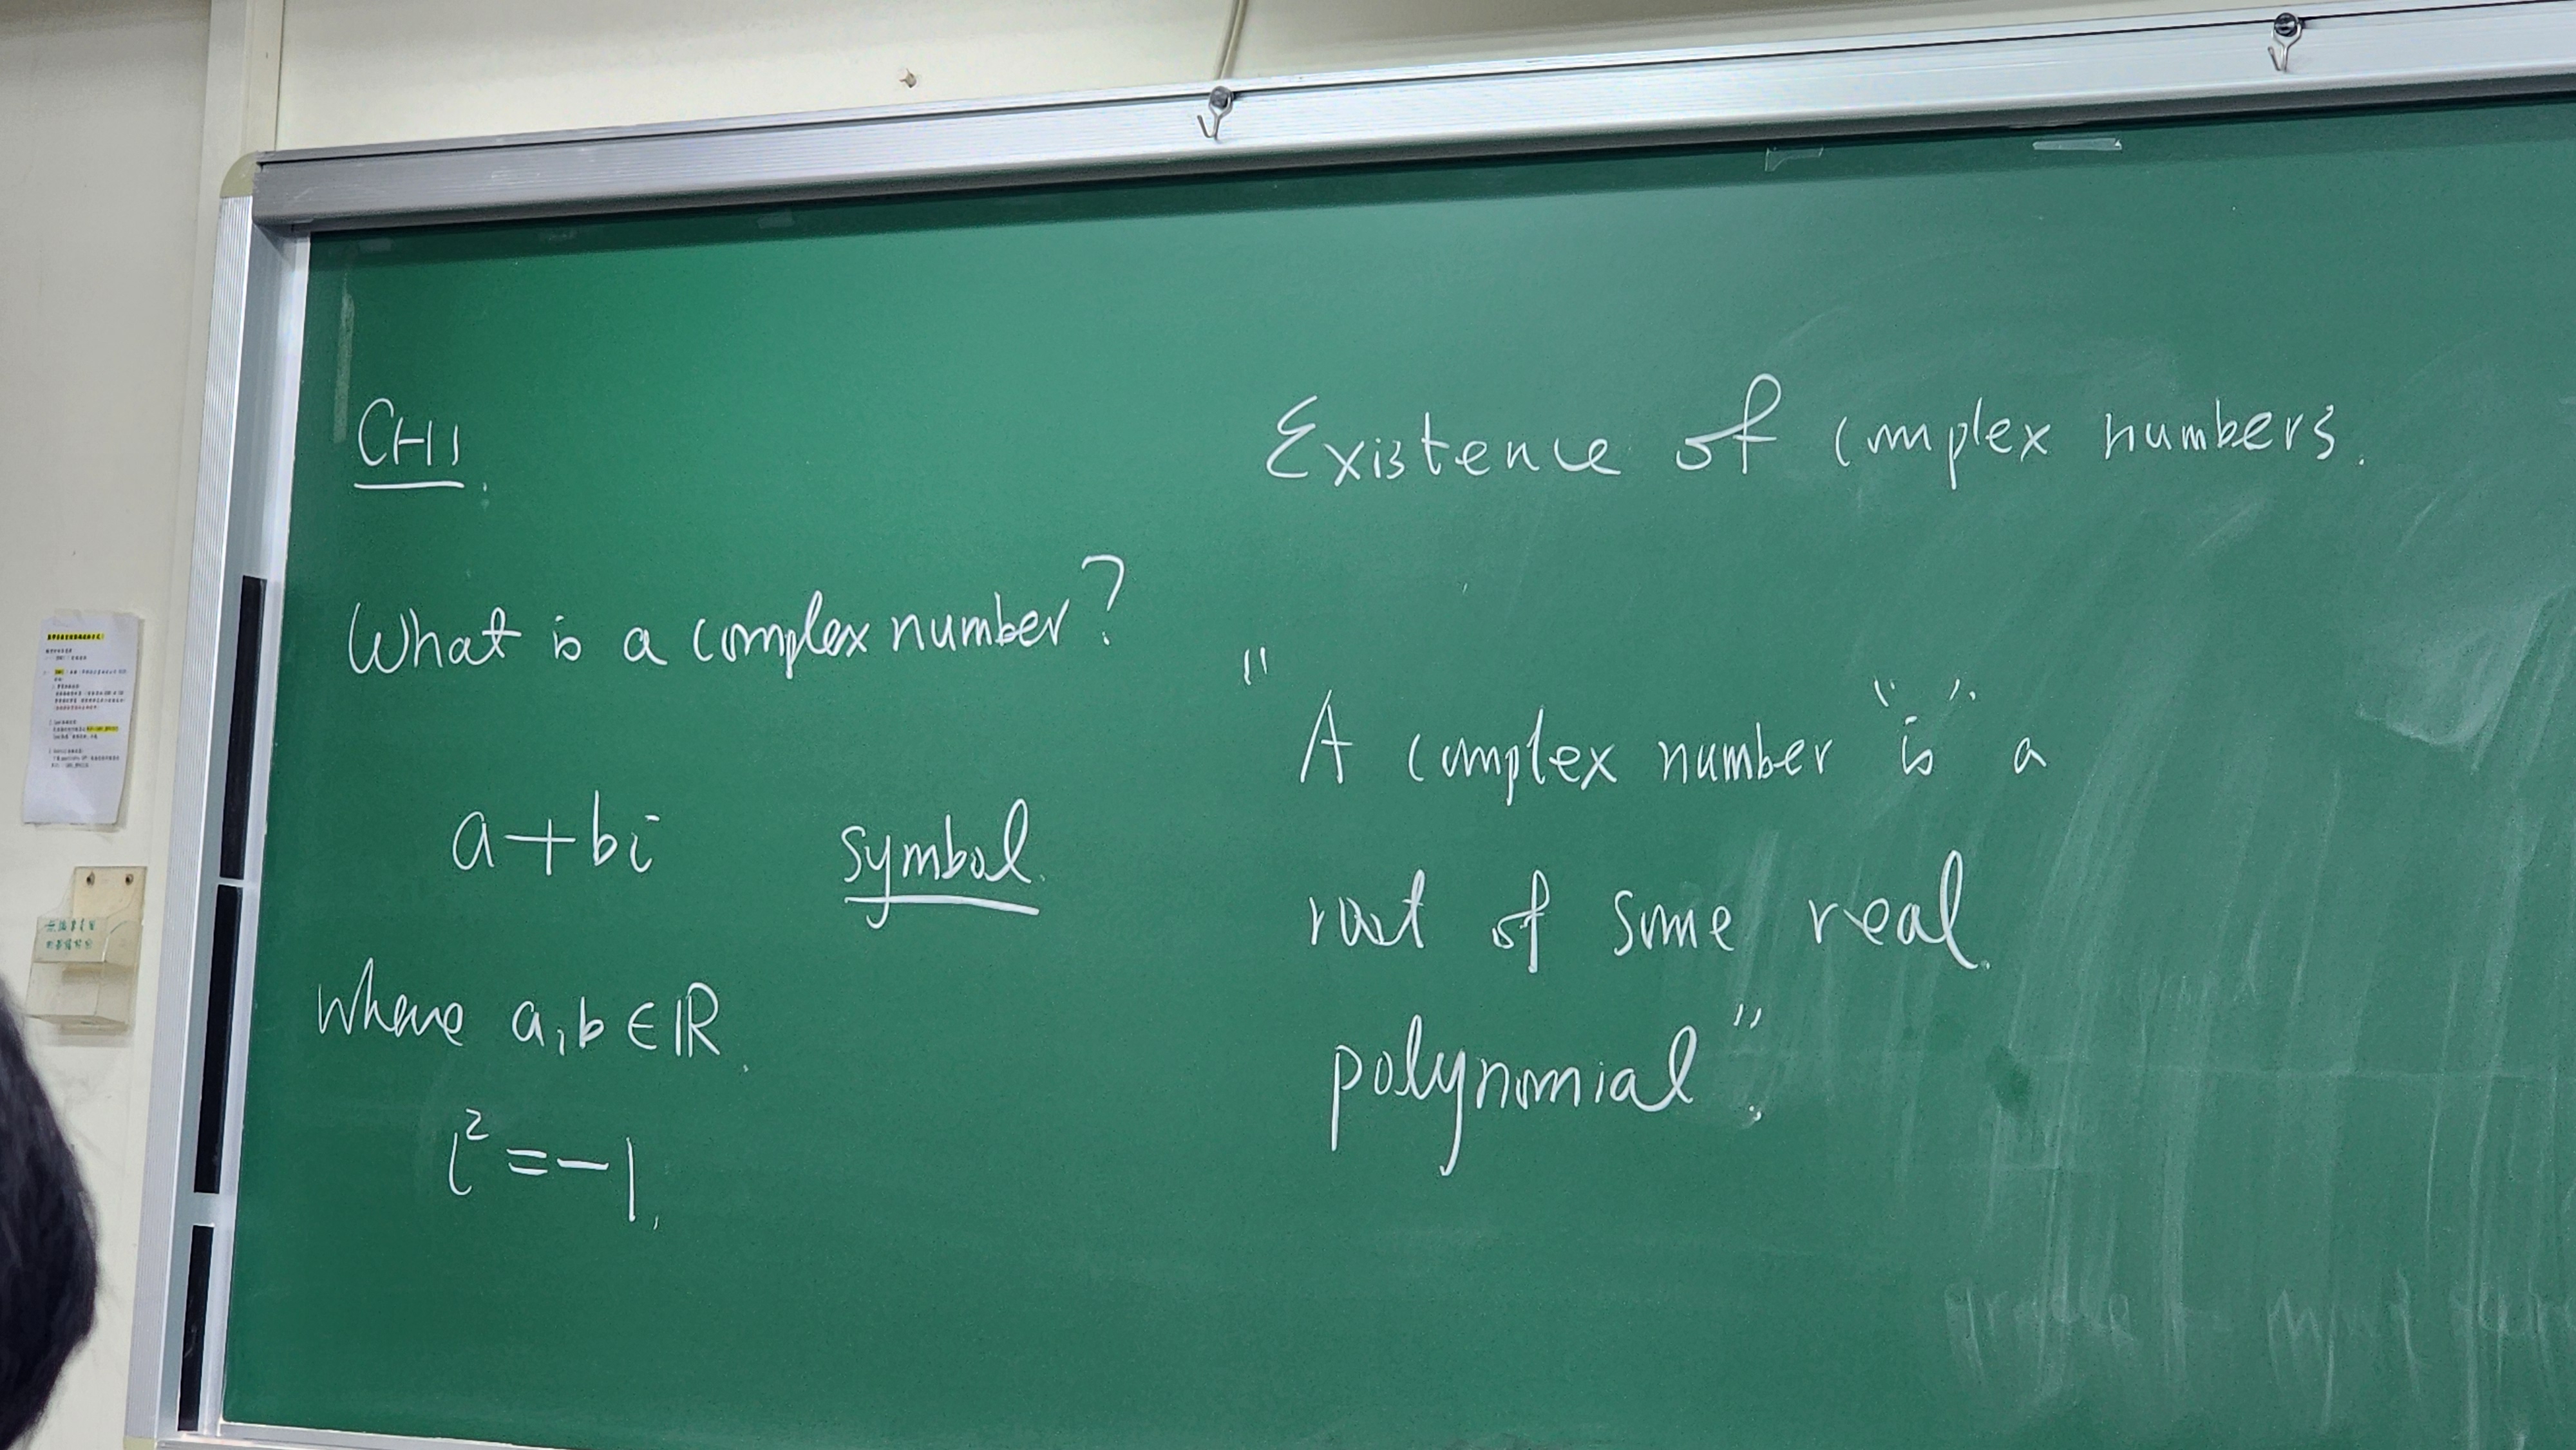 CH1.
What is a complex number?
a+bi symbol.
where a, b ∈ ℝ.
i² = -1.
Existence of complex numbers.
"A complex number "is" a
root of some real
polynomial".